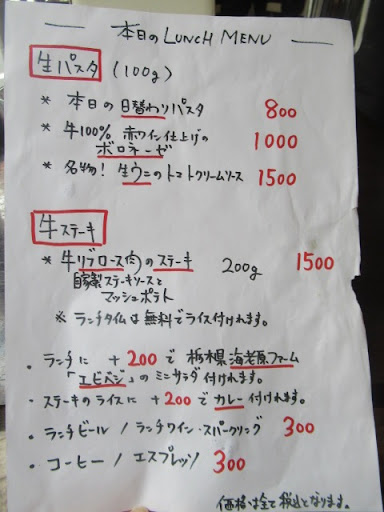 本日のLUNCH MENU
生パスタ (100g)
* 本日の日替わりパスタ 800
* 牛100% 赤ワイン仕上げの
ボロネーゼ 1000
* 名物! 生ウニのトマトクリームソース 1500
牛ステーキ
* 牛リブロース肉のステーキ 200g 1500
自家製ステーキソースと
マッシュポテト
※ ランチタイムは無料でライス付けれます。
・ランチに +200で 栃木県海老原ファーム
「エビベジ」のミニサラダ付けれます。
・ステーキのライスに +200でカレー付けれます。
・ランチビール / ランチワイン・スパークリング 300
・コーヒー / エスプレッソ 300
価格は全て税込となります。